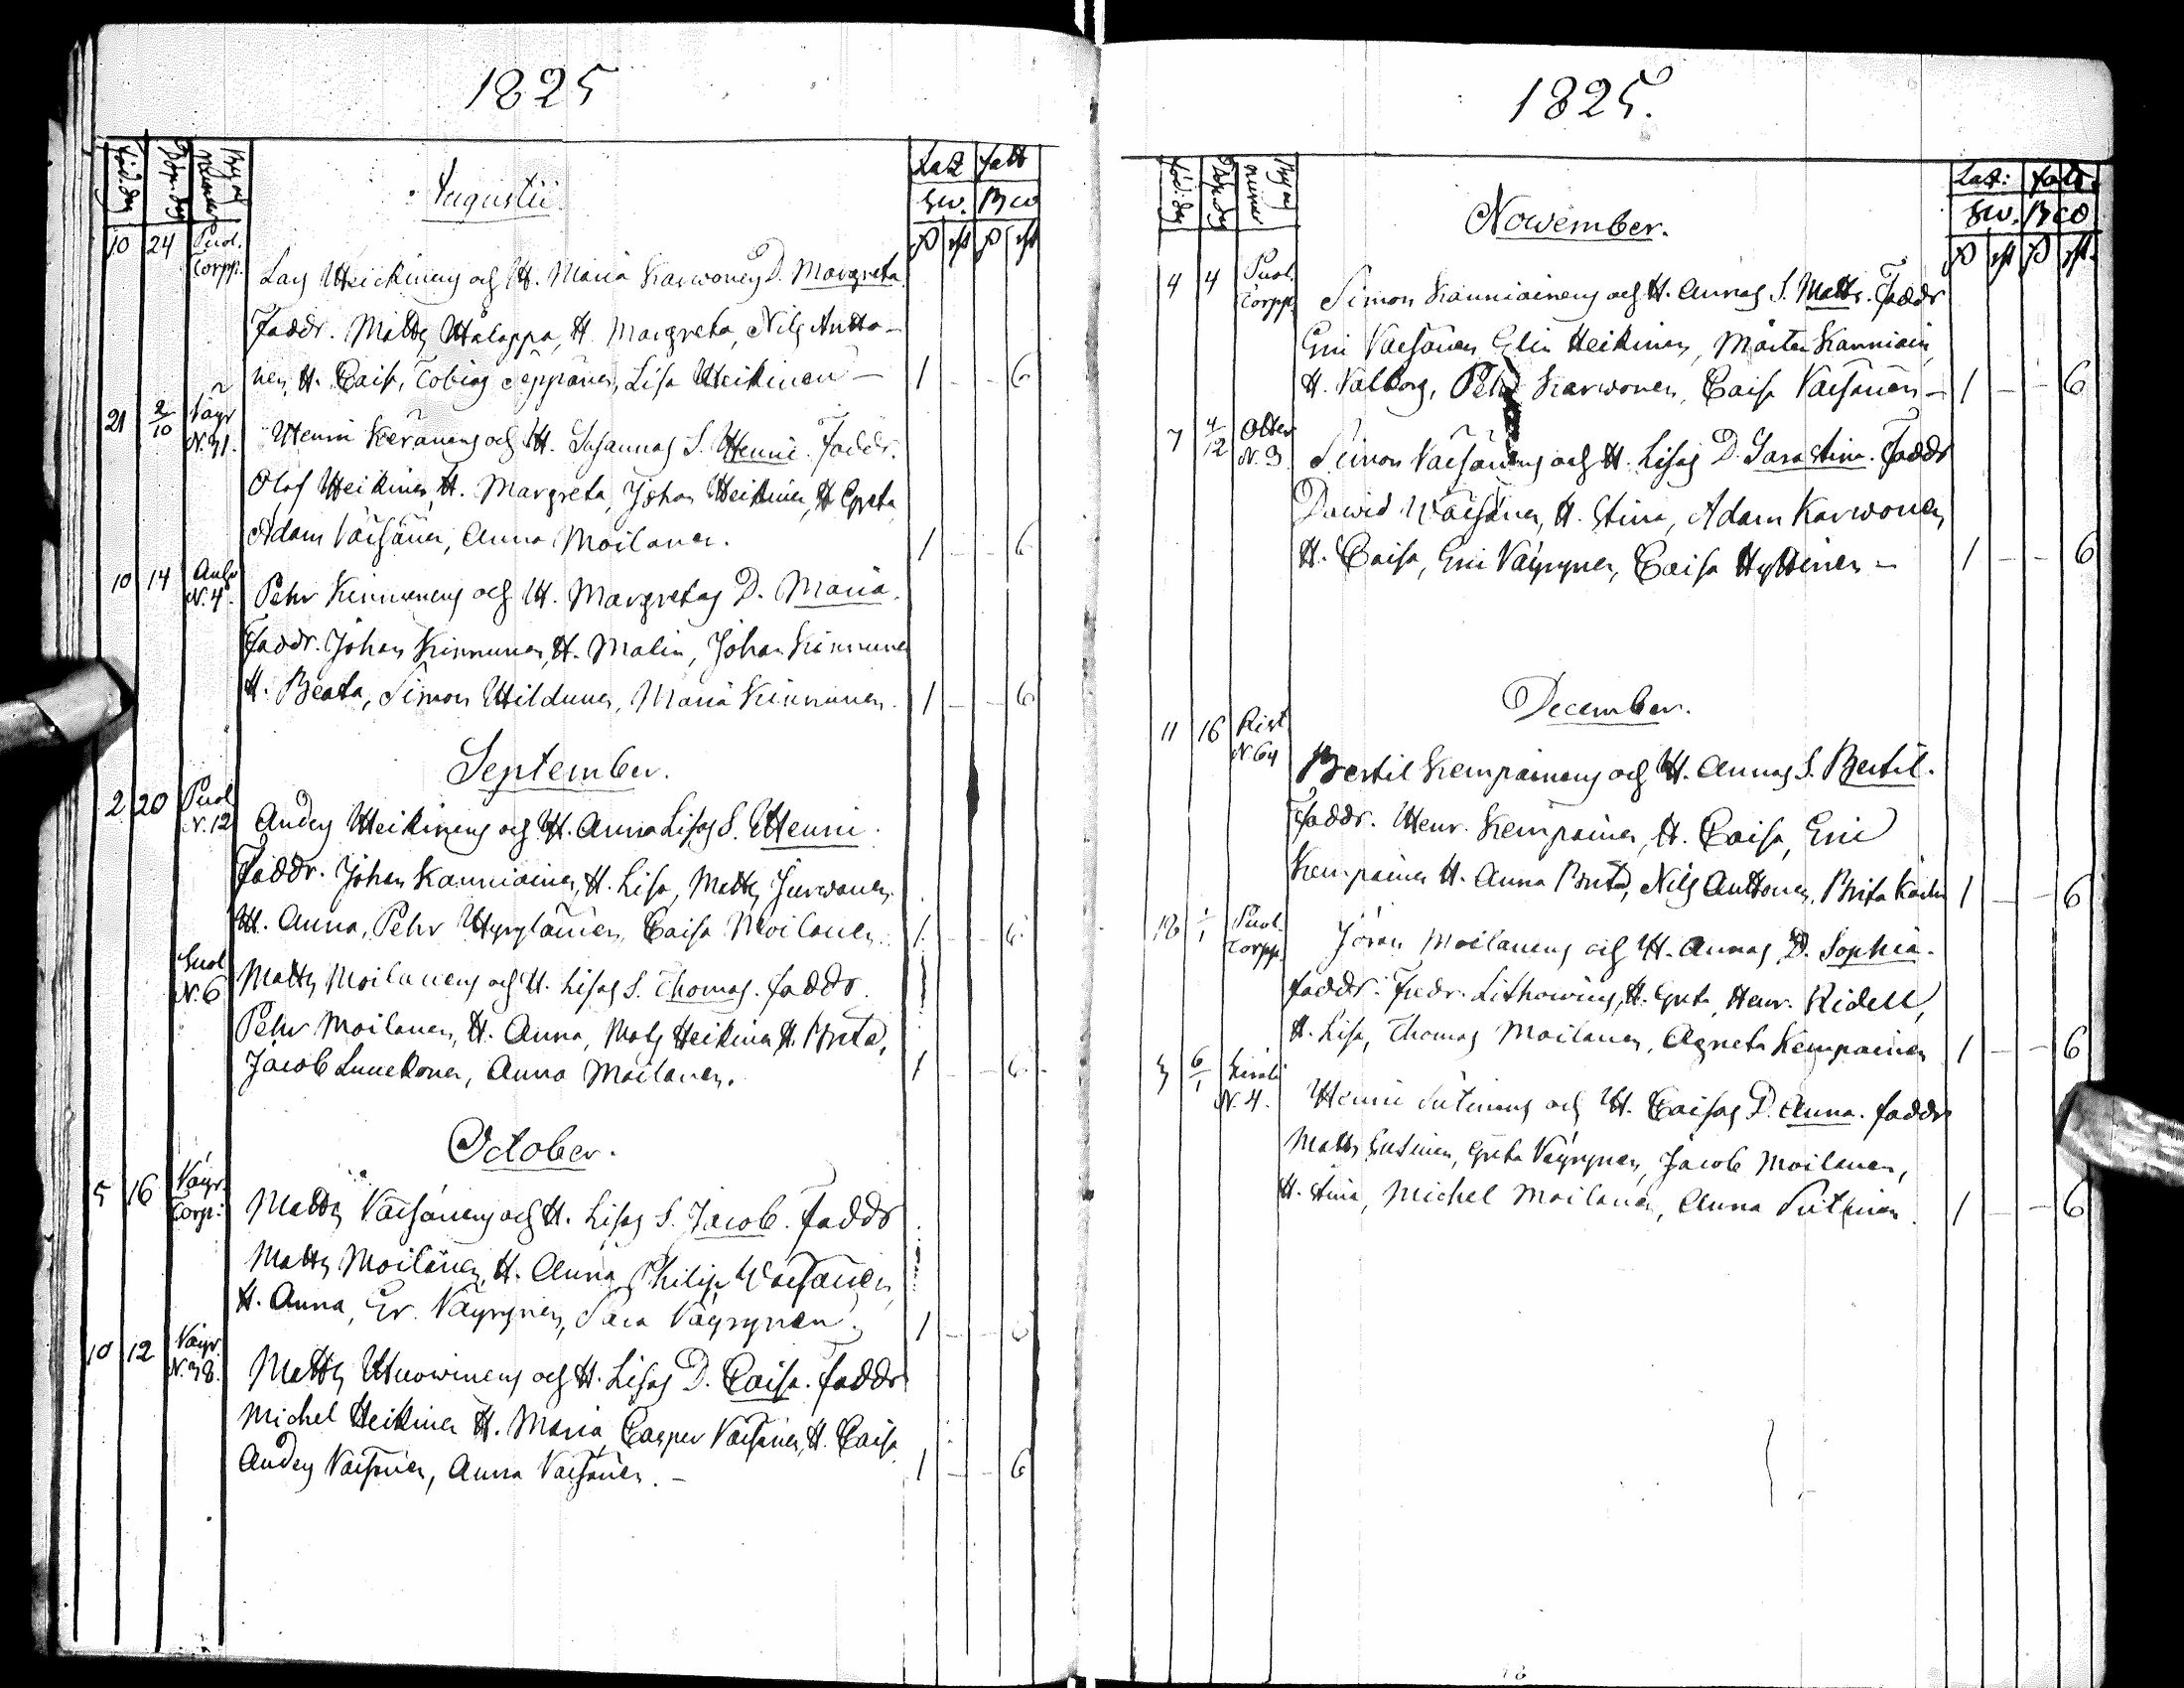 1825
Augustii
Laz fatt
Sw. Bco
10 24 Puol. Torpp.
Lars Heickinens och H. Maria Karwonens D. Margreta
Faddr. Matts Halappa, H. Margreta, Nils Antto-
nen, H. Caisa, Tobias Seppänen, Lisa Heikinen — 1 — — 6
21 2/10 Väyr N. 31.
Henric Keränens och H. Susannas S. Henric. Faddr.
Olof Heikinen, H. Margreta, Johan Heikinen, H. Greta
Adam Väisänen, Anna Moilanen. 1 — — 6
10 14 N. 4.
Pehr Kinnunens och H. Margretas D. Maria.
Faddr. Johan Kinnunen, H. Malin, Johan Kinnunen
H. Beata, Simon Hildunen, Maria Kinnunen. 1 — — 6
September.
2 20 Puol N. 12
Anders Heikinens och H. Anna Lisas S. Henric.
Faddr. Johan Kanniainen, H. Lisa, Matts Jurwanen
H. Anna, Pehr Hyryläinen, Caisa Moilanen. 1 — — 6
N. 6
Matts Moilanens och H. Lisas S. Thomas. faddr.
Pehr Moilanen, H. Anna, Mats Heikinen H. Brita,
Jacob Lunckonen, Anna Moilanen. 1 — — 6
October.
5 16 Väyr. Torp.
Matts Väisänens och H. Lisas S. Jacob. Faddr
Matts Moilänen, H. Anna Philip Waisänen,
H. Anna, Er. Väyrynen, Sara Väyrynen. 1 — — 6
10 12 Väyr. N. 38.
Matts Huowinens och H. Lisas D. Caisa. faddr
Michel Heikinen H. Maria, Casper Väisänen, H. Caisa
Anders Väisänen, Anna Väisänen. — 1 — — 6
1825.
Nowember.
Laz: fatt.
Sw. Bco
4 4 Puol. Torpp.
Simon Kanniainens och H. Annas S. Matts. Faddr
Eric Väisänen Elin Heikinen, Mårten Kanniain,
H. Valborg, Pehr Karwonen, Caisa Väisänen — 1 — — 6
7 4/12 N. 3
Simon Väisänens och H. Lisas D. Sara Stina. Faddr
Dawid Wäisänen, H. Stina, Adam Karwonen,
H. Caisa, Eric Väyrynen, Caisa Hyttinen — 1 — — 6
December.
11 16 Rist. N. 64
Bertil Kempainens och H. Annas S. Bertil.
Faddr. Henr. Kempainen, H. Caisa, Eric
Kempainen H. Anna Brita, Nils Anttonen, Brita 1 — — 6
1/1 Puol. Torpp.
Jöran Moilanens och H. Annas D. Sophia.
faddr. Fredr. Lithowius, H. Greta, Henr. Ridell,
H. Lisa, Thomas Moilanen, Agneta Kempainen 1 — — 6
6/1 N. 4.
Henric Sutinens och H. Caisas D. Anna. faddr
Matts Sutinen, Greta Väyrynen, Jacob Moilanen,
H. Stina, Michel Moilanen, Anna Sutinen. 1 — — 6